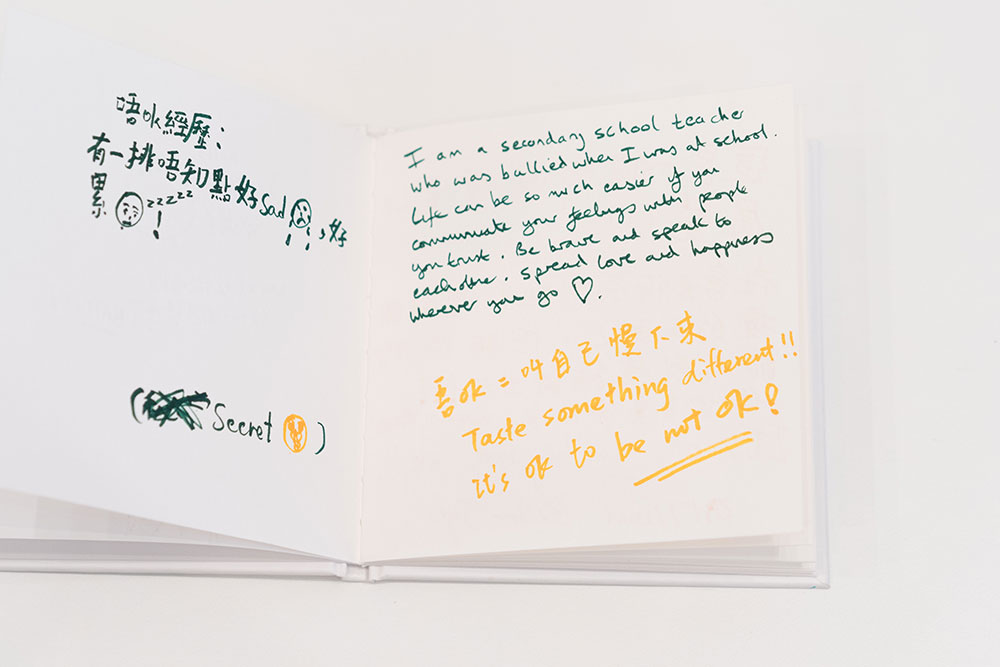 唔ok經歷：
有一排唔知點好sad，好
累 zzzzz！
( Secret )
I am a secondary school teacher
who was bullied when I was at school.
Life can be so much easier if you
communicate your feelings with people
you trust. Be brave and speak to
each other. Spread love and happiness
wherever you go ♡.
唔ok = 叫自己慢下來
Taste something different!!
it's ok to be not ok!